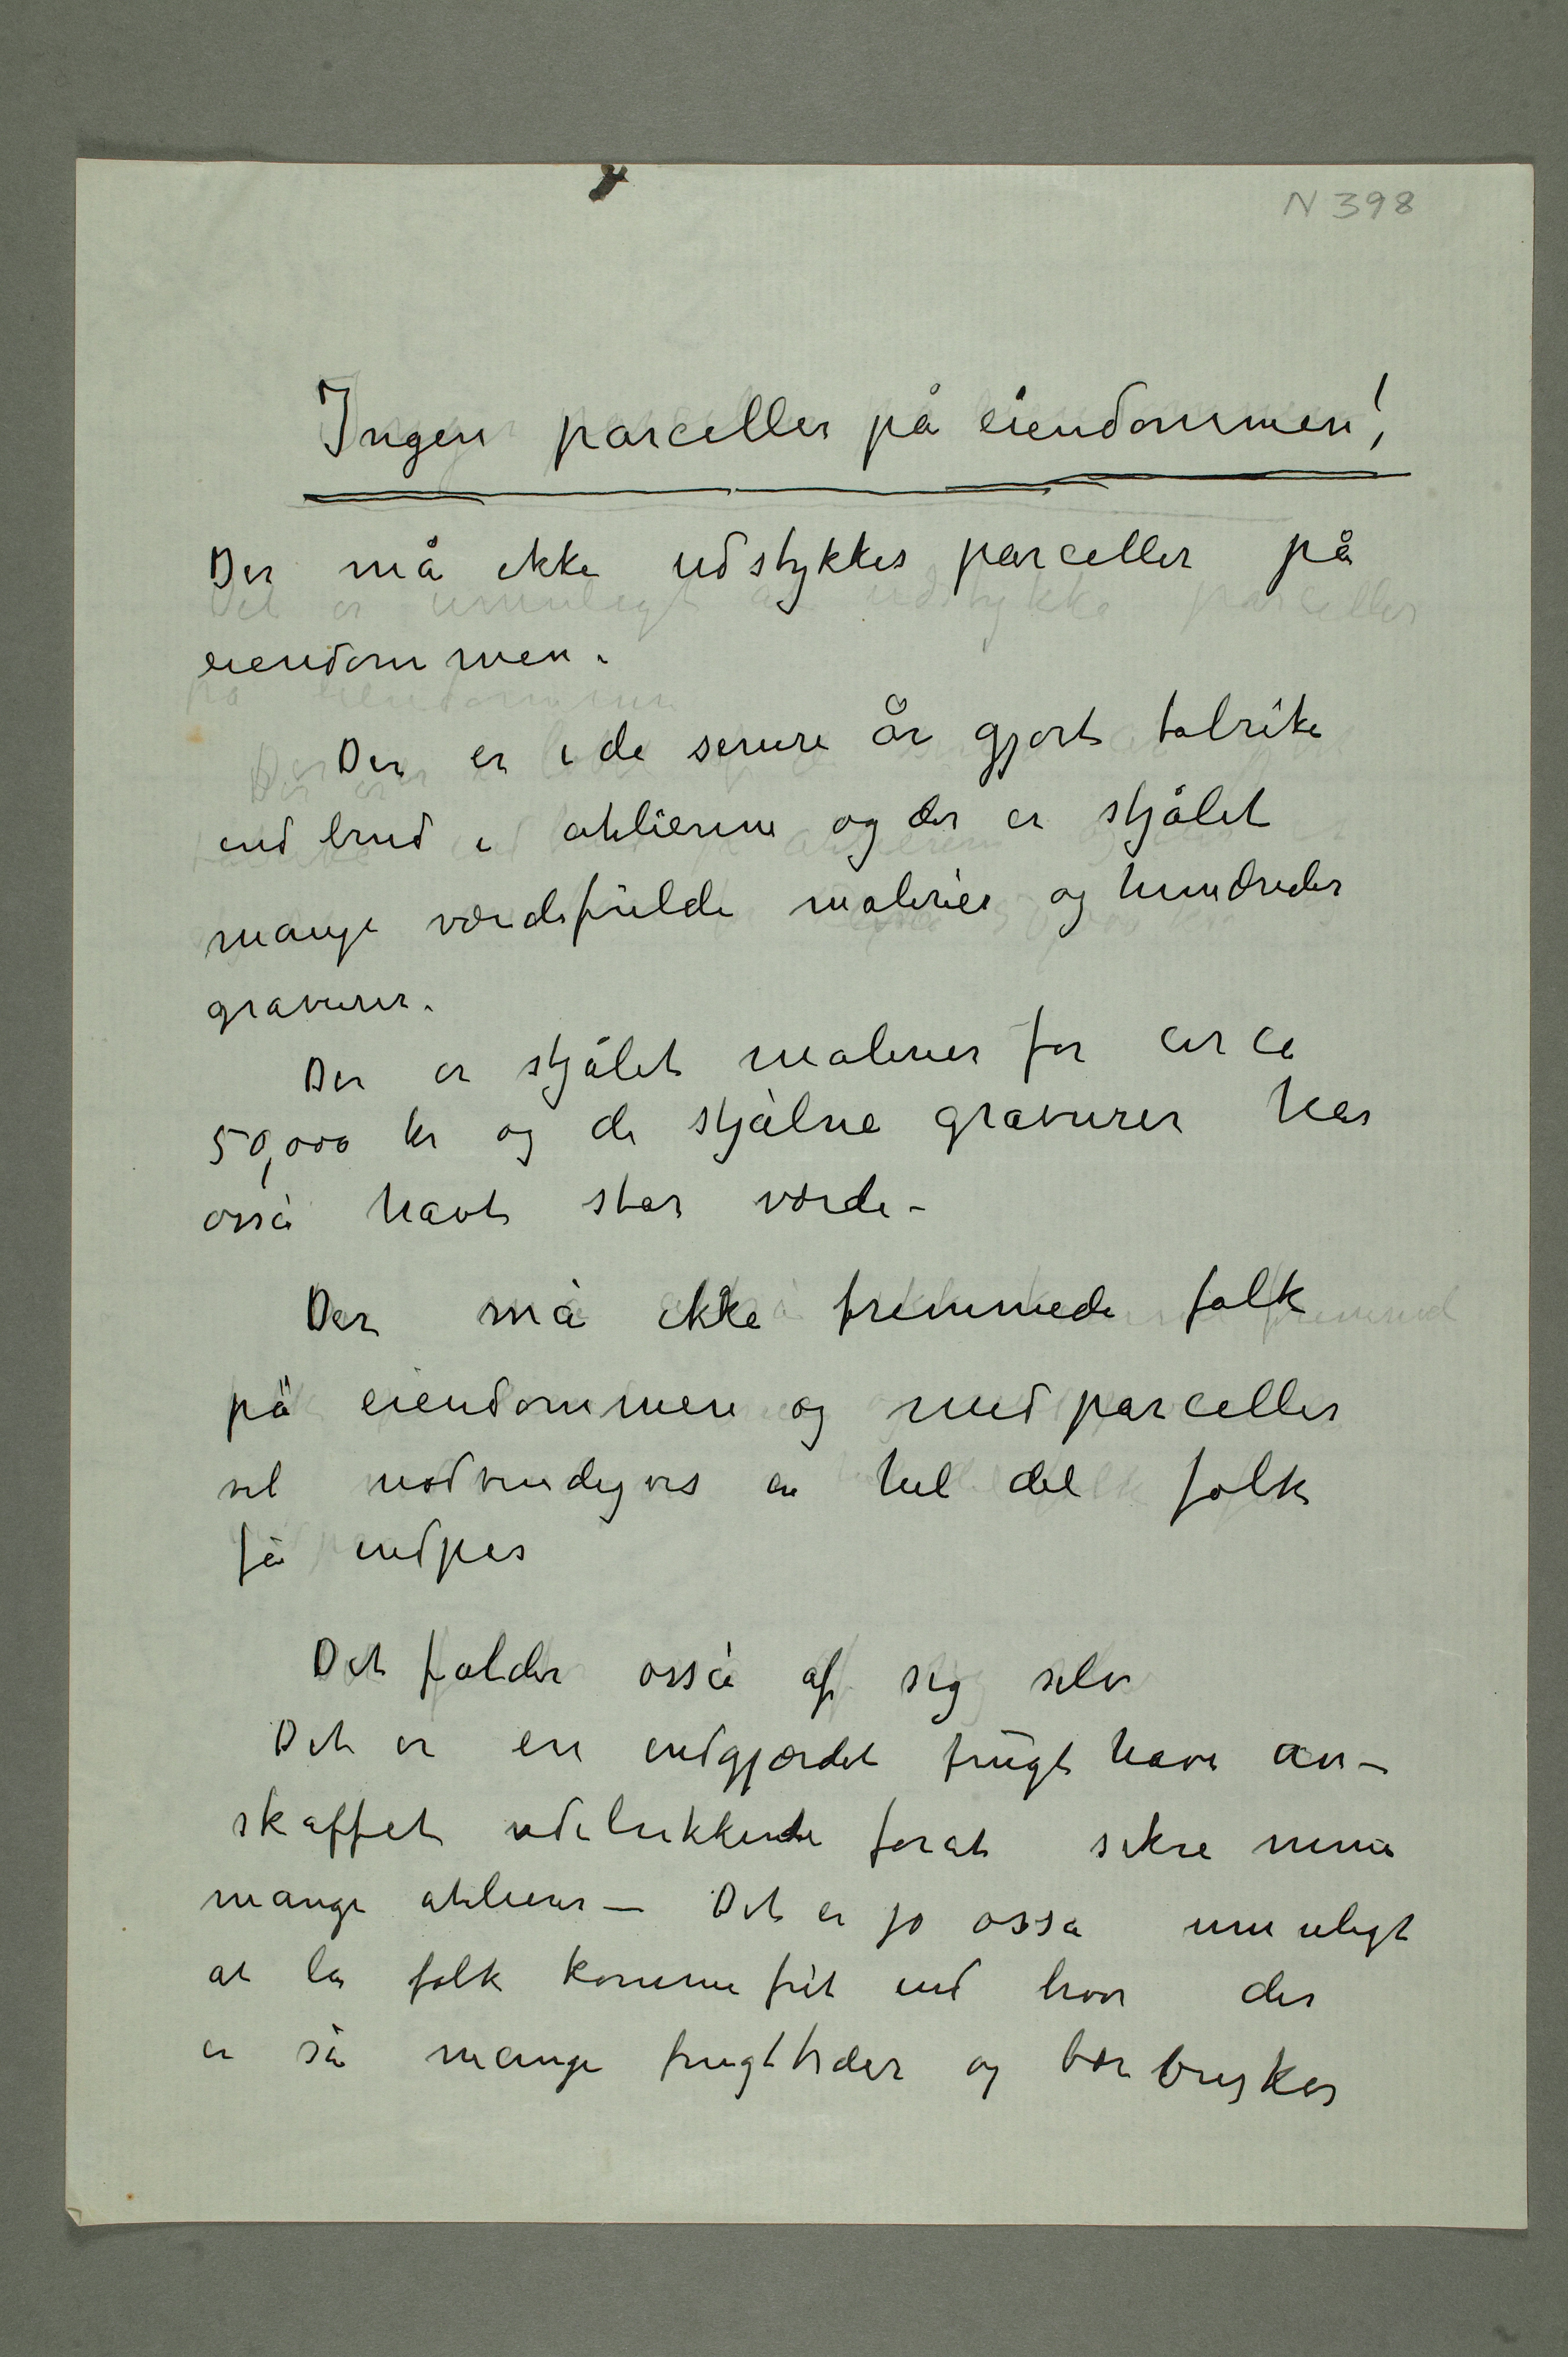 N 398
Ingen parceller på eiendommen!
Der må ikke udstykkes parceller på
eiendommen.
Der er i de senere år gjort talrike
indbrud i atelierene og der er stjålet
mange værdifulde malerier og hundreder
gravurer.
Der er stjålet malerier for circa
50,000 kr og de stjålne gravurer har
osså havt stor værdi –
Der må ikke fremmede folk
på eiendommen og med parceller
vil nødvendigvis en hel del folk
få indpas
Det falder osså af sig selv
Det er en indgjærdet frugthave an–
skaffet udelukkende forat sikre mine
mange atelierer – Det er jo osså umuligt
at la folk komme frit ind hvor der
er så mange frugttrær og bærbusker